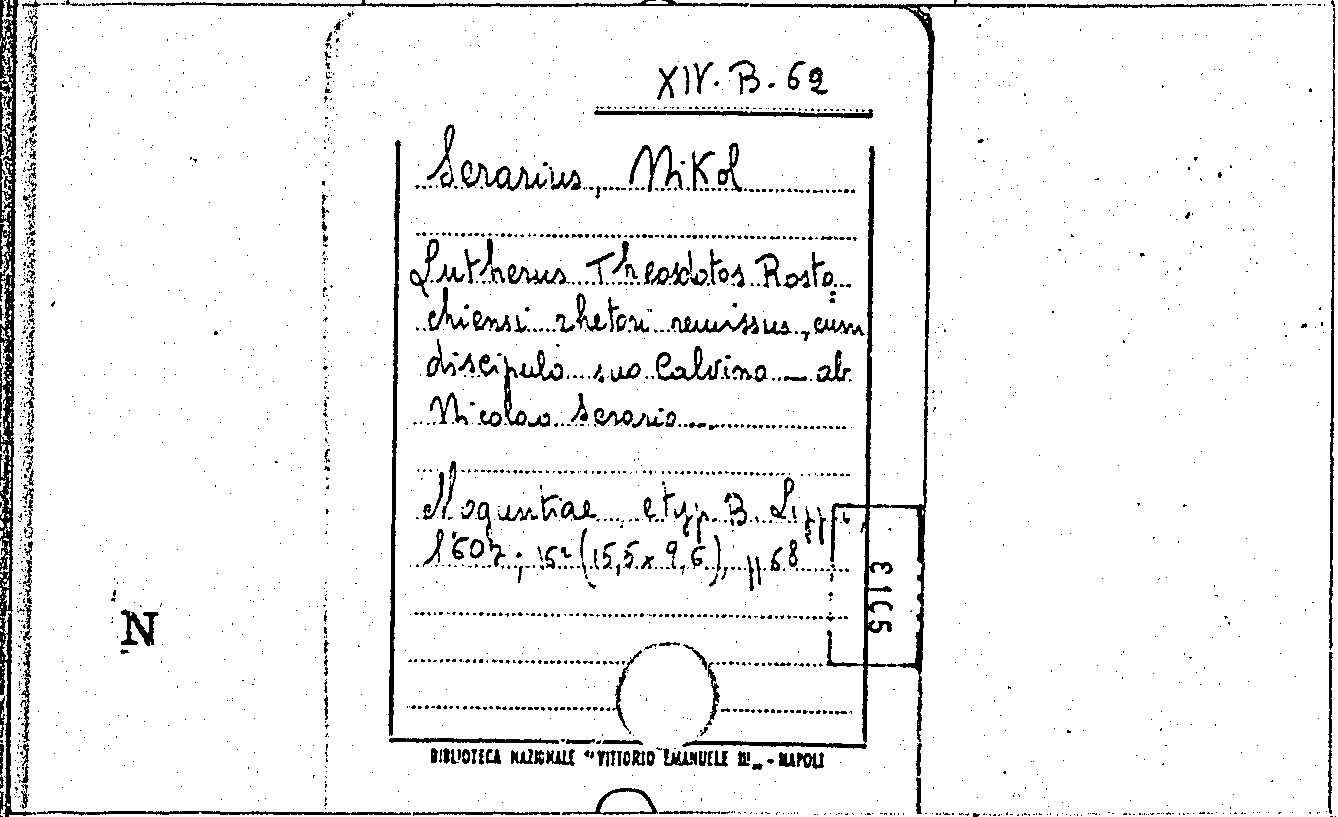 XIV. B. 62
Serarius, Nikol
Lutherus Theosdotos Rosto=
chiensi rhetori remissus, cum
discipulo suo Calvino — ab
Nicolao Serario —
Moguntiae, e typ. B. Lippi,
1607; 16° (15,5x9,6), pp 68
E1C5
N
BIBLIOTECA NAZIONALE "VITTORIO EMANUELE III„ - NAPOLI